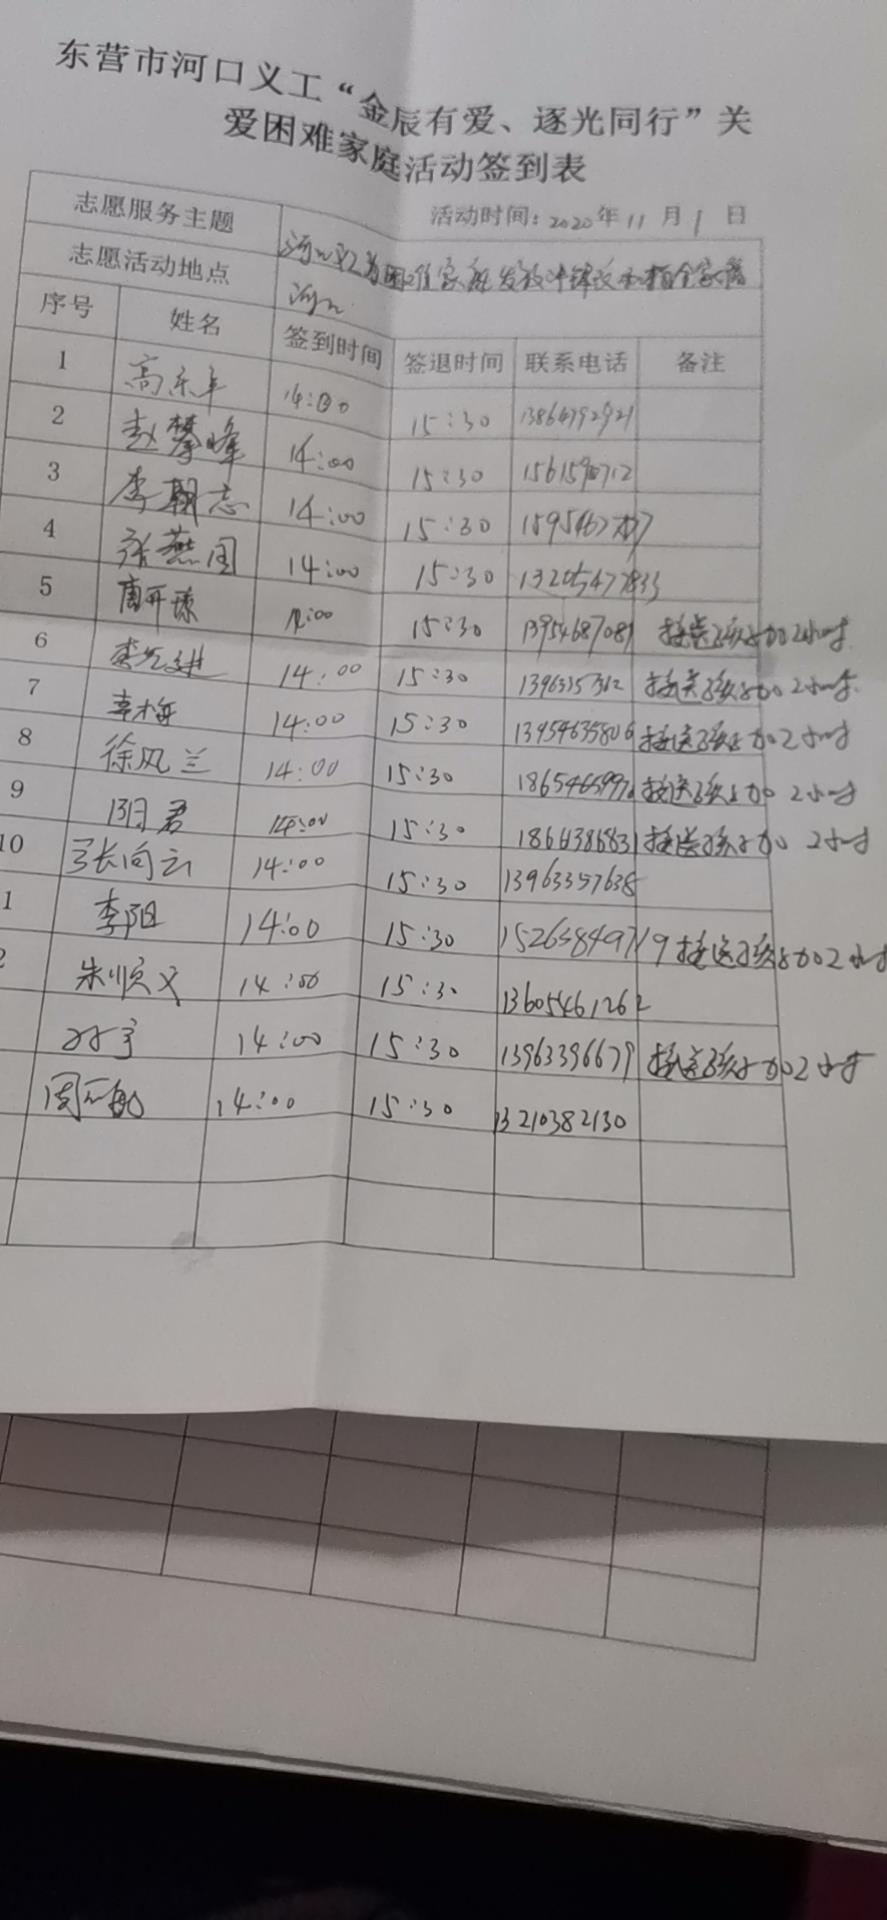 东营市河口义工“金辰有爱、逐光同行”关
爱困难家庭活动签到表
活动时间：2020年11月1日
志愿服务主题 河口义工为困难家庭发放冲锋衣和拍全家福
志愿活动地点 河口
序号 姓名 签到时间 签退时间 联系电话 备注
1 高乐年 14:00 15:30
2 赵攀峰 14:00 15:30
3 李朝志 14:00 15:30
4 张燕国 14:00 15:30
5 14:00 15:30 接送孩子加2小时
6 14:00 15:30 接送孩子加2小时
7 李梅 14:00 15:30 13954635806 接送孩子加2小时
8 徐风兰 14:00 15:30 接送孩子加2小时
9 君 14:00 15:30 1866386831 接送孩子加2小时
10 张向云 14:00 15:30 13963357638
1 李阳 14:00 15:30 15263849719 接送孩子加2小时
2 朱顺义 14:00 15:30 13605461262
14:00 15:30 13963396679 接送孩子加2小时
14:00 15:30 13210382130